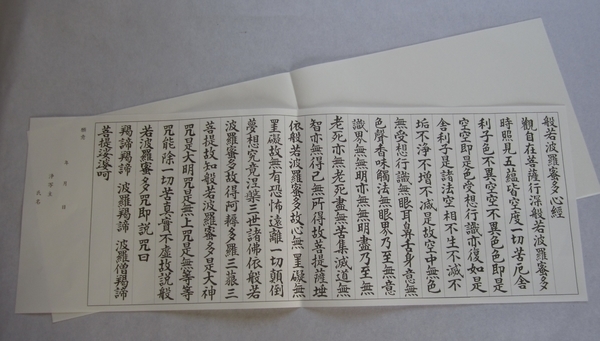 般若波羅蜜多心經
觀自在菩薩行深般若波羅蜜多
時照見五蘊皆空度一切苦厄舍
利子色不異空空不異色色即是
空空即是色受想行識亦復如是
舍利子是諸法空相不生不滅不
垢不淨不增不減是故空中無色
無受想行識無眼耳鼻舌身意無
色聲香味觸法無眼界乃至無意
識界無無明亦無無明盡乃至無
老死亦無老死盡無苦集滅道無
智亦無得已無所得故菩提薩埵
依般若波羅蜜多故心無罣礙無
罣礙故無有恐怖遠離一切顛倒
夢想究竟涅槃三世諸佛依般若
波羅蜜多故得阿耨多羅三藐三
菩提故知般若波羅蜜多是大神
咒是大明咒是無上咒是無等等
咒能除一切苦真實不虛故說般
若波羅蜜多咒即說咒曰
羯諦羯諦 波羅羯諦 波羅僧羯諦
菩提娑婆呵